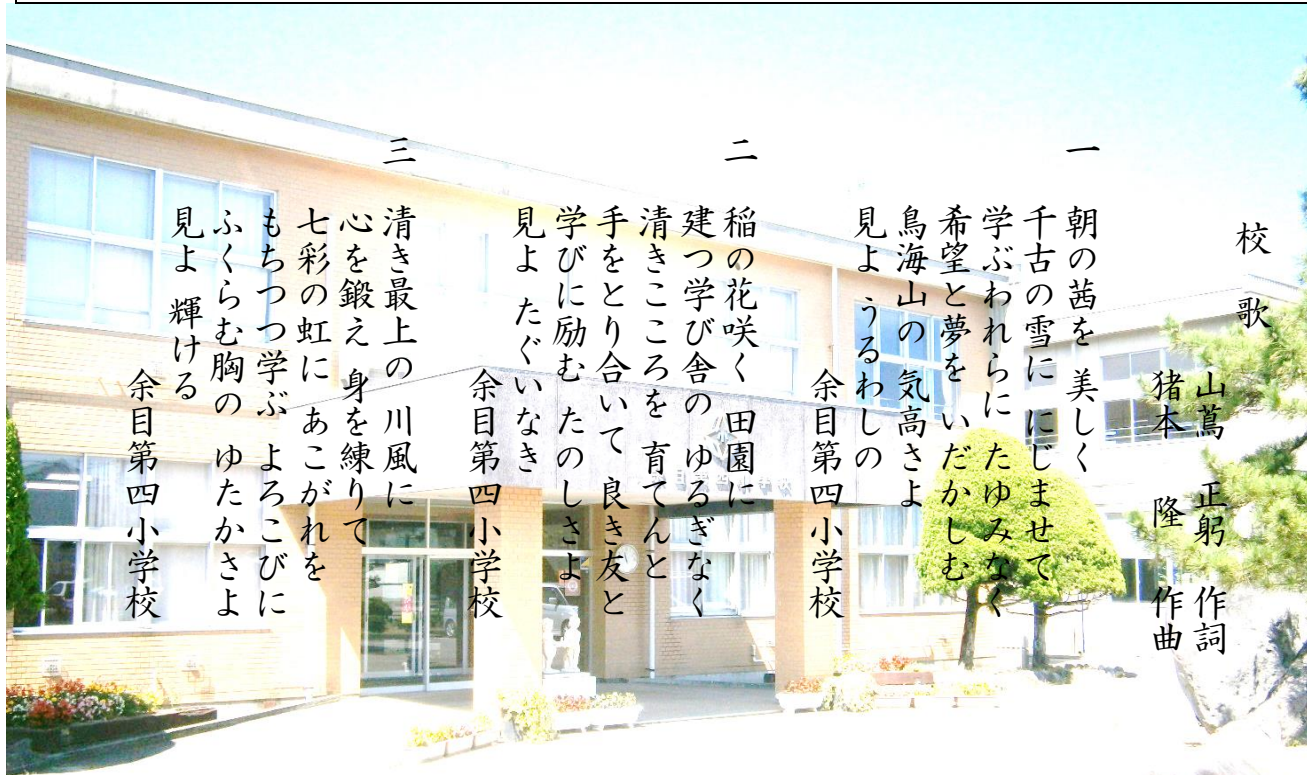 校　歌
山蔦　正躬　作詞
猪本　隆　作曲
一　朝の茜を　美しく
千古の雪に　にじませて
学ぶわれらに　たゆみなく
希望と夢を　いだかしむ
鳥海山の　気高さよ
見よ　うるわしの
余目第四小学校
二　稲の花咲く　田園に
建つ学び舎の　ゆるぎなく
清きこころを　育てんと
手をとり合いて　良き友と
学びに励む　たのしさよ
見よ　たぐいなき
余目第四小学校
三　清き最上の　川風に
心を鍛え　身を練りて
七彩の虹に　あこがれを
もちつつ学ぶ　よろこびに
ふくらむ胸の　ゆたかさよ
見よ　輝ける
余目第四小学校